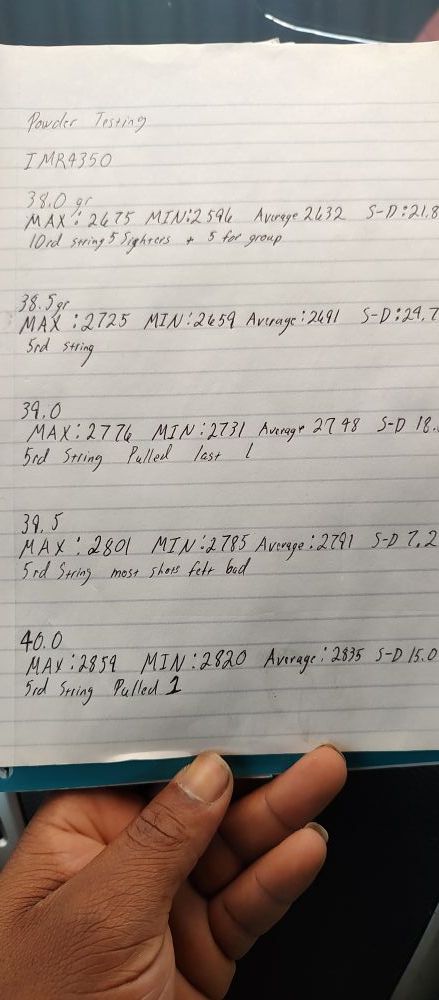 Powder Testing
IMR4350
38.0 gr
MAX: 2675 MIN: 2596 Average 2632 S-D:21.8
10rd string 5 Sighters + 5 for group
38.5gr
MAX: 2725 MIN: 2659 Average: 2691 S-D:24.7
5rd String
39.0
MAX: 2776 MIN: 2731 Average 2748 S-D 18.
5rd String Pulled last 1
39.5
MAX: 2801 MIN: 2785 Average: 2791 S-D 7.2
5rd String most shots felt bad
40.0
MAX: 2859 MIN: 2820 Average: 2835 S-D 15.0
5rd String Pulled 1